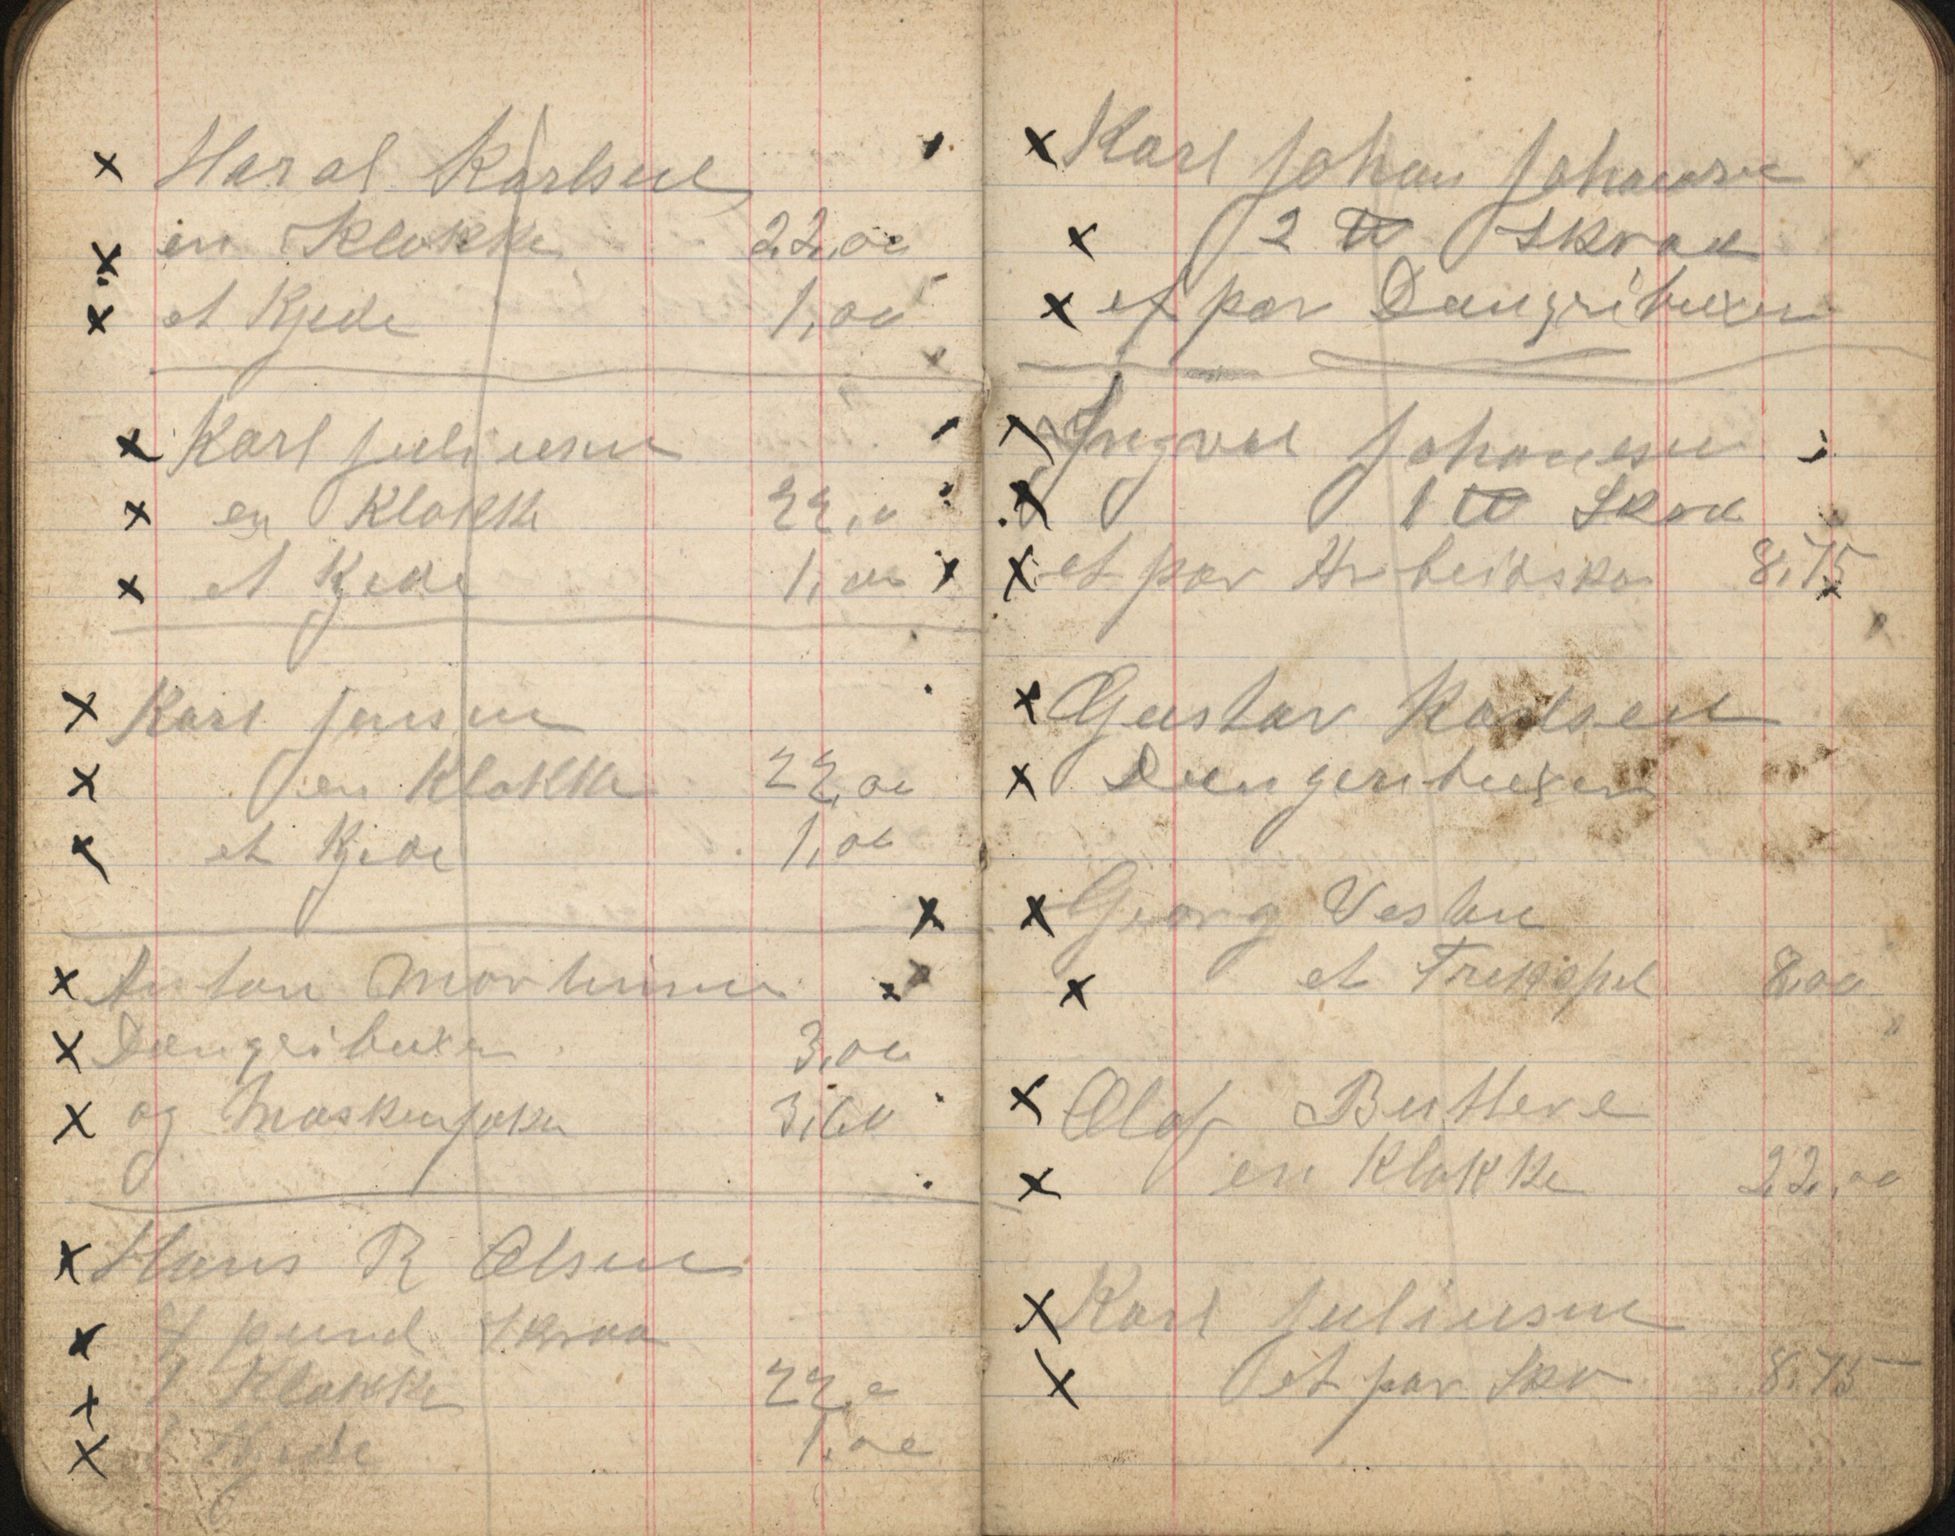 Haral Karlsen
en Klokke 22,00
et Kjede 1,00
Karl Juliusen
en Klokke 22,0
et Kjede 1,00
Karl Jensen
en Klokke 22,00
et Kjede 1,00
Anton Mortensen
Dongeribuxer 3,00
og Maskenjakke 3,60
Hans R Olsen
pund Skraa
1 Klokke 22,0
1 Kjede 1,00
Karl Johan Johansen
2 ℔ Skraa
et par Dangribuxer
Ingval Johanesen
1 ℔ Skraa
et par Arbeidsko 8,75
Gustav Karlsen
Dangeribuxer
Georg Vesten
et Trekspel 8,00
Olof Buttere
en Klokke 22,00
Karl Juliusen
et par Sko 8,75